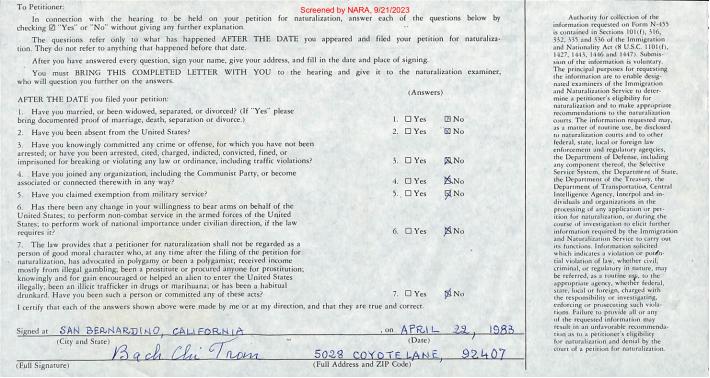 Screened by NARA, 9/21/2023
To Petitioner:
In connection with the hearing to be held on your petition for naturalization, answer each of the questions below by
checking ☑ "Yes" or "No" without giving any further explanation.
The questions refer only to what has happened AFTER THE DATE you appeared and filed your petition for naturaliza-
tion. They do not refer to anything that happened before that date.
After you have answered every question, sign your name, give your address, and fill in the date and place of signing.
You must BRING THIS COMPLETED LETTER WITH YOU to the hearing and give it to the naturalization examiner,
who will question you further on the answers.
(Answers)
AFTER THE DATE you filed your petition:
1. Have you married, or been widowed, separated, or divorced? (If "Yes" please
bring documented proof of marriage, death, separation or divorce.) 1. ☐ Yes ☒ No
2. Have you been absent from the United States? 2. ☐ Yes ☒ No
3. Have you knowingly committed any crime or offense, for which you have not been
arrested; or have you been arrested, cited, charged, indicted, convicted, fined, or
imprisoned for breaking or violating any law or ordinance, including traffic violations? 3. ☐ Yes ☒ No
4. Have you joined any organization, including the Communist Party, or become
associated or connected therewith in any way? 4. ☐ Yes ☒ No
5. Have you claimed exemption from military service? 5. ☐ Yes ☒ No
6. Has there been any change in your willingness to bear arms on behalf of the
United States; to perform non-combat service in the armed forces of the United
States; to perform work of national importance under civilian direction, if the law
requires it? 6. ☐ Yes ☒ No
7. The law provides that a petitioner for naturalization shall not be regarded as a
person of good moral character who, at any time after the filing of the petition for
naturalization, has advocated in polygamy or been a polygamist; received income
mostly from illegal gambling; been a prostitute or procured anyone for prostitution;
knowingly and for gain encouraged or helped an alien to enter the United States
illegally; been an illicit trafficker in drugs or marihuana; or has been a habitual
drunkard. Have you been such a person or committed any of these acts? 7. ☐ Yes ☒ No
I certify that each of the answers shown above were made by me or at my direction, and that they are true and correct.
Signed at SAN BERNARDINO, CALIFORNIA , on APRIL 22, 1983
(City and State) (Date)
Bach Chi Tran 5028 COYOTE LANE, 92407
(Full Signature) (Full Address and ZIP Code)
Authority for collection of the
information requested on Form N-455
is contained in Sections 101(f), 316,
332, 335 and 336 of the Immigration
and Nationality Act (8 U.S.C. 1101(f),
1427, 1443, 1446 and 1447). Submis-
sion of the information is voluntary.
The principal purposes for requesting
the information are to enable desig-
nated examiners of the Immigration
and Naturalization Service to deter-
mine a petitioner's eligibility for
naturalization and to make appropriate
recommendations to the naturalization
courts. The information requested may,
as a matter of routine use, be disclosed
to naturalization courts and to other
federal, state, local or foreign law
enforcement and regulatory agencies,
the Department of Defense, including
any component thereof, the Selective
Service System, the Department of State,
the Department of the Treasury, the
Department of Transportation, Central
Intelligence Agency, Interpol and in-
dividuals and organizations in the
processing of any application or peti-
tion for naturalization, or during the
course of investigation to elicit further
information required by the Immigration
and Naturalization Service to carry out
its functions. Information solicited
which indicates a violation or poten-
tial violation of law, whether civil,
criminal, or regulatory in nature, may
be referred, as a routine use, to the
appropriate agency, whether federal,
state, local or foreign, charged with
the responsibility or investigating,
enforcing or prosecuting such viola-
tions. Failure to provide all or any
of the requested information may
result in an unfavorable recommenda-
tion as to a petitioner's eligibility
for naturalization and denial by the
court of a petition for naturalization.